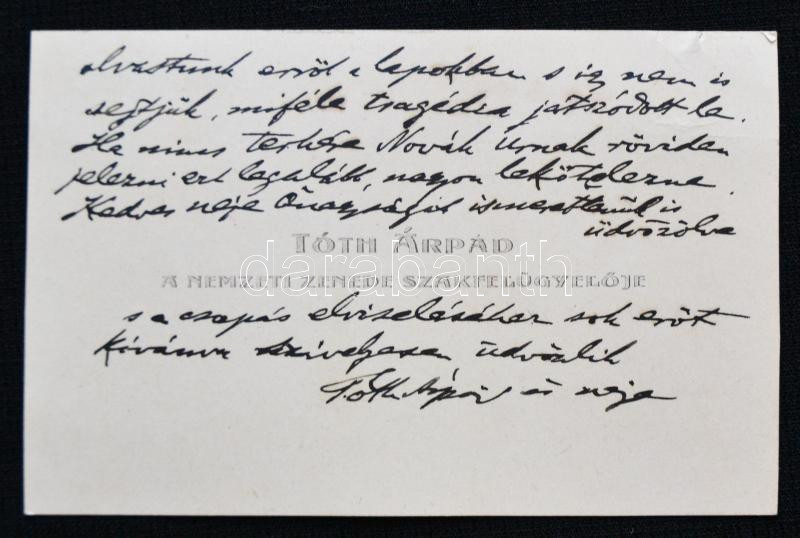 olvastunk erröl a lapokban s így nem is
sejtjük, miféle tragédia játszódott le.
Ha nincs terhére Novák Urnak röviden
jelezni ezt legalább, nagyon lekötelezne.
Kedves neje Őnagyságát ismeretlenül is
üdvözölve
TÓTH ÁRPÁD
A NEMZETI ZENEDE SZAKFELÜGYELŐJE
darabanth
s a csapás elviseléséhez sok erőt
kívánva szívélyesen üdvözlik
Tóth Árpád és neje